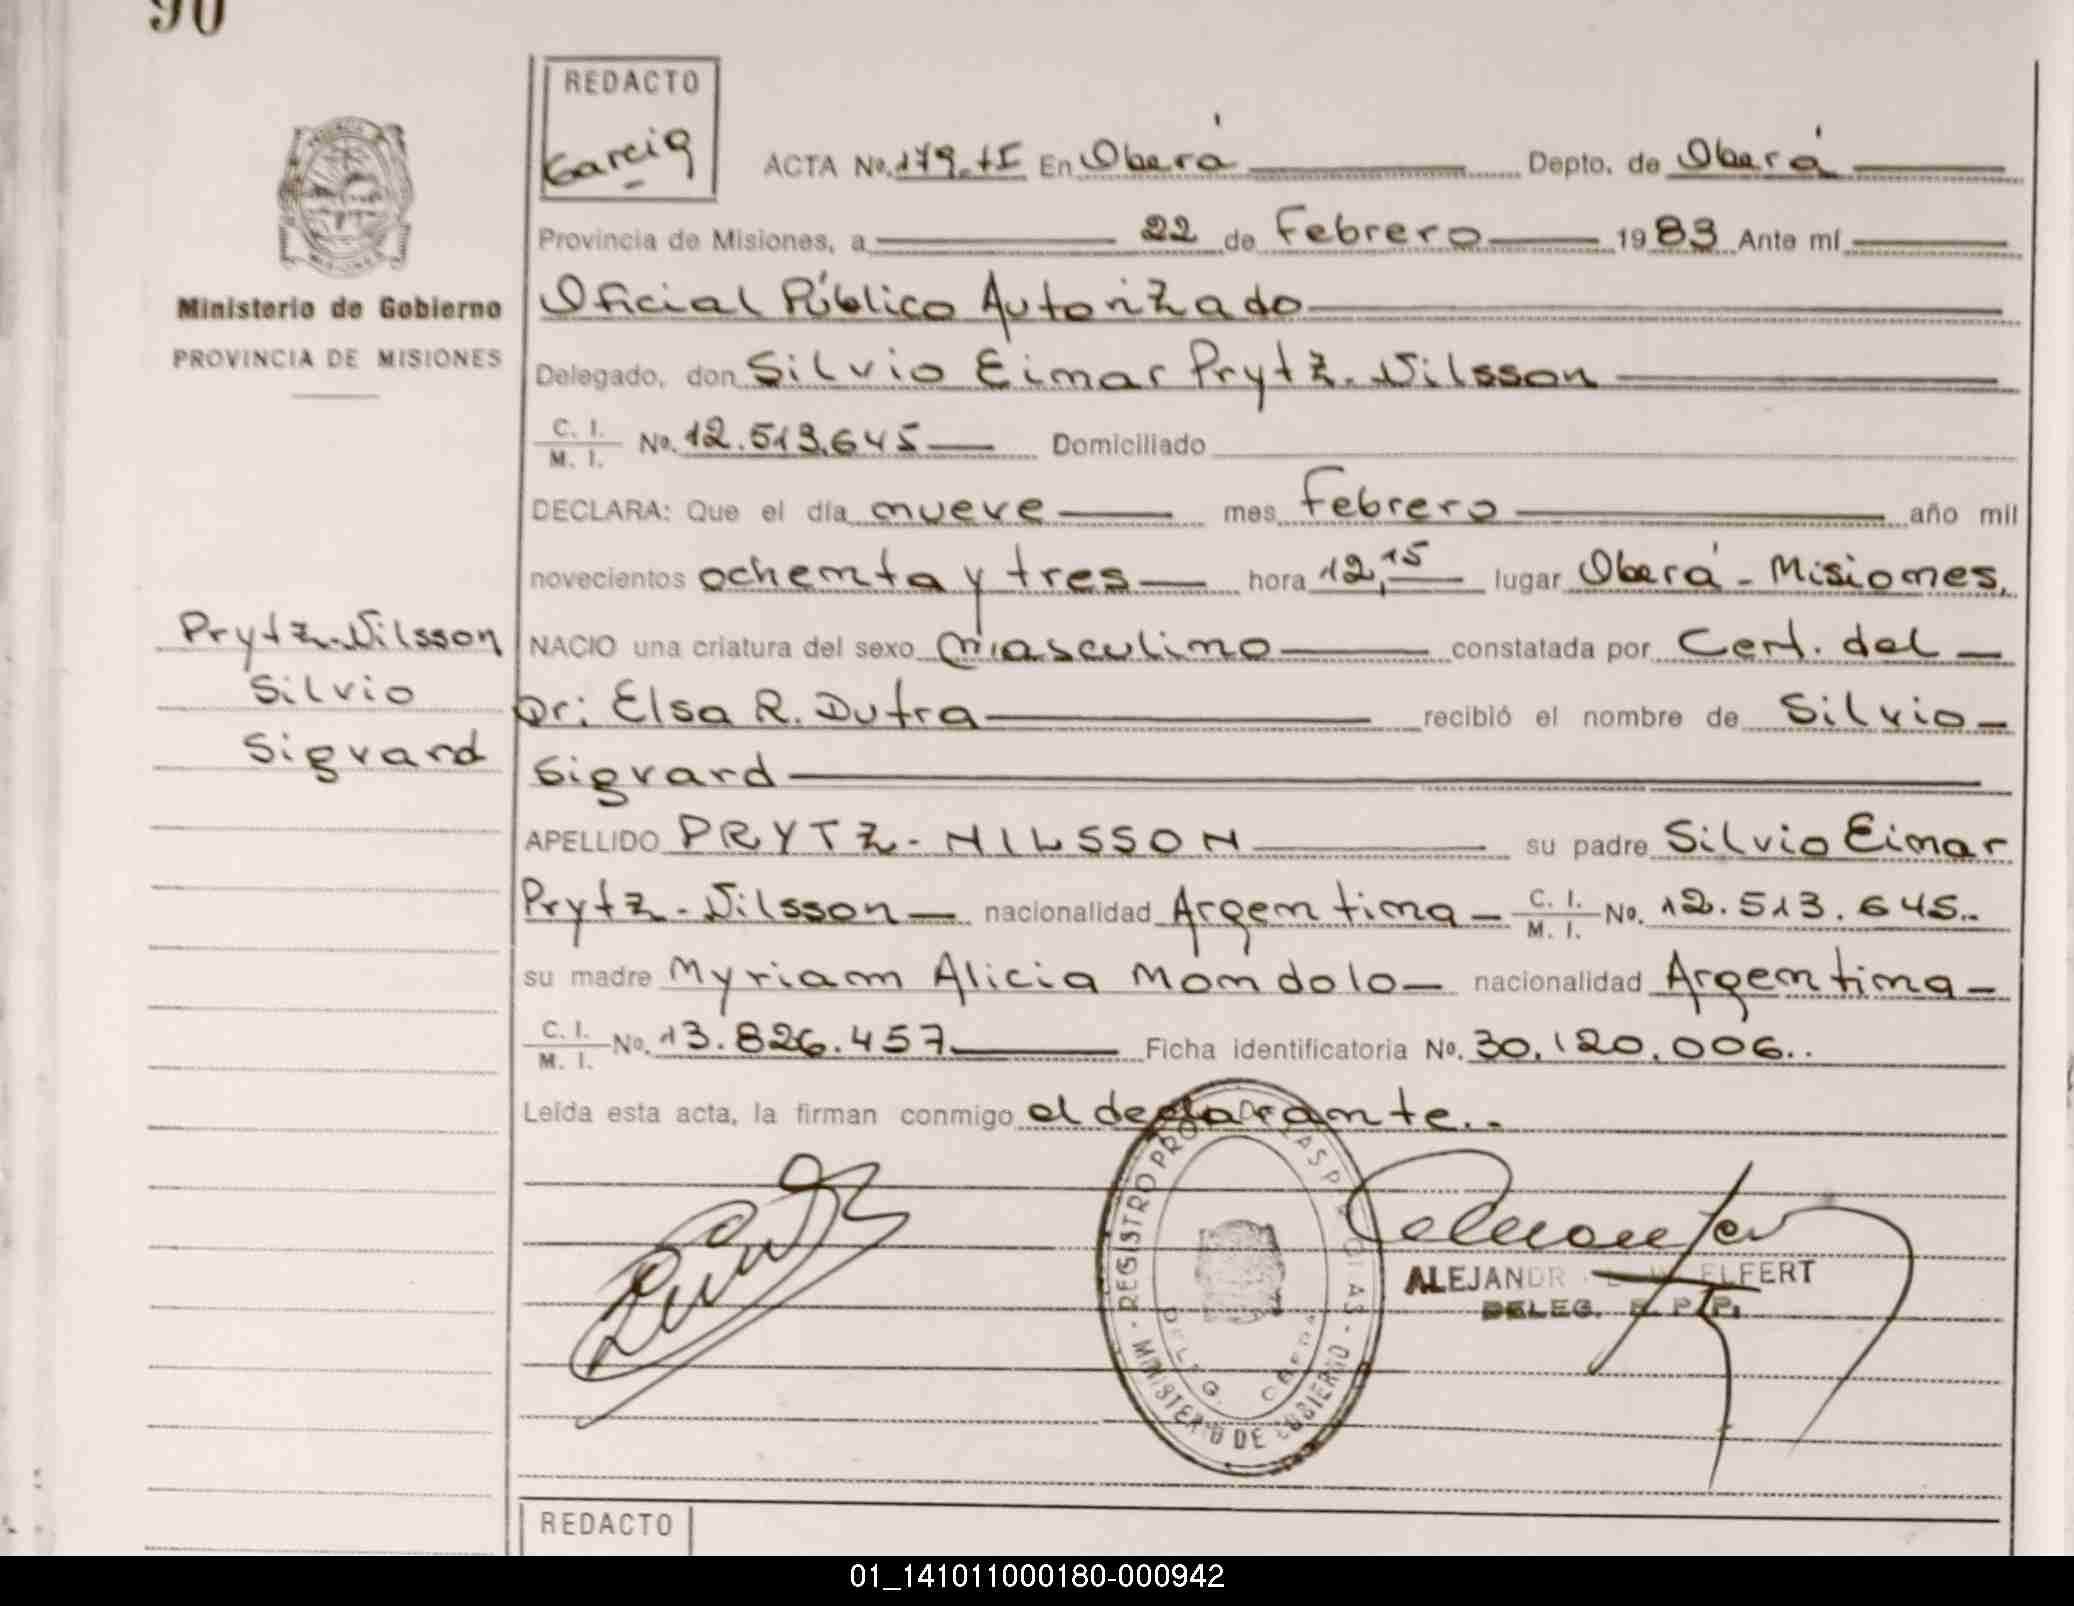 90
REDACTO
Garcia
ACTA No. 179.tI En Oberá Depto. de Oberá
Provincia de Misiones, a 22 de Febrero 1983 Ante mí
Ministerio de Gobierno
PROVINCIA DE MISIONES
Oficial Público Autorizado
Delegado, don Silvio Eimar Prytz-Nilsson
C. I. / M. I. No. 12.513.645 Domiciliado
DECLARA: Que el día nueve mes Febrero año mil
novecientos ochenta y tres hora 12,15 lugar Oberá - Misiones,
Prytz-Nilsson
Silvio
Sigvard
NACIO una criatura del sexo masculino constatada por Cert. del
Dr: Elsa R. Dutra recibió el nombre de Silvio
Sigvard
APELLIDO PRYTZ-NILSSON su padre Silvio Eimar
Prytz-Nilsson nacionalidad Argentina C. I. / M. I. No. 12.513.645.
su madre Myriam Alicia Mondolo nacionalidad Argentina
C. I. / M. I. No. 13.826.457 Ficha identificatoria No. 30.120.006.
Leída esta acta, la firman conmigo el declarante.
REGISTRO PROV. DE LAS PERSONAS - MINISTERIO DE GOBIERNO
DELEG. OBERA
ALEJANDR ELFERT
DELEG. R. P. P.
REDACTO
01_141011000180-000942